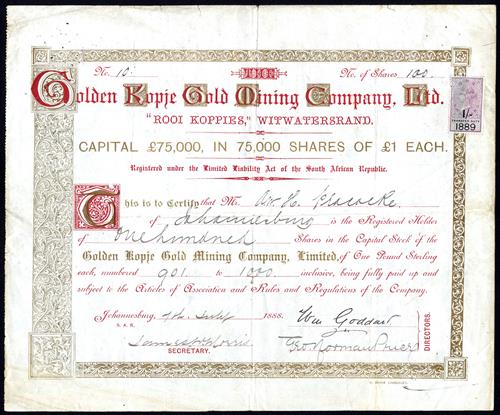 No. 10. No. of Shares 100.
Golden Kopje Gold Mining Company, Ltd.
"ROOI KOPPIES," WITWATERSRAND.
1/-
TRANSFER DUTY
1889
CAPITAL £75,000, IN 75,000 SHARES OF £1 EACH.
Registered under the Limited Liability Act of the South African Republic.
This is to Certify that Mr. W. H. Peacocke
of Johannesburg is the Registered Holder
of One hundred Shares in the Capital Stock of the
Golden Kopje Gold Mining Company, Limited, of One Pound Sterling
each, numbered 901 to 1000 inclusive, being fully paid up and
subject to the Articles of Association and Rules and Regulations of the Company.
Johannesburg, July 1888. Wm Goddard
S. A. R.
James Morris Geo Norman Price
SECRETARY.
DIRECTORS.